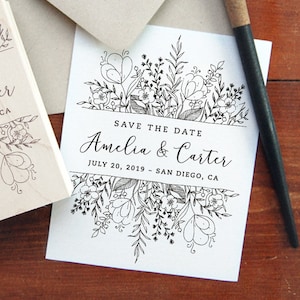 SAVE THE DATE
Amelia & Carter
JULY 20, 2019 – SAN DIEGO, CA
CA